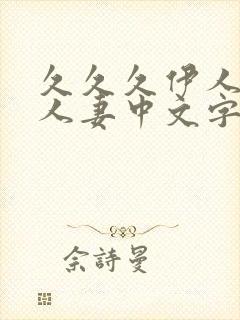 久久久伊人
人妻中文字
佘詩曼